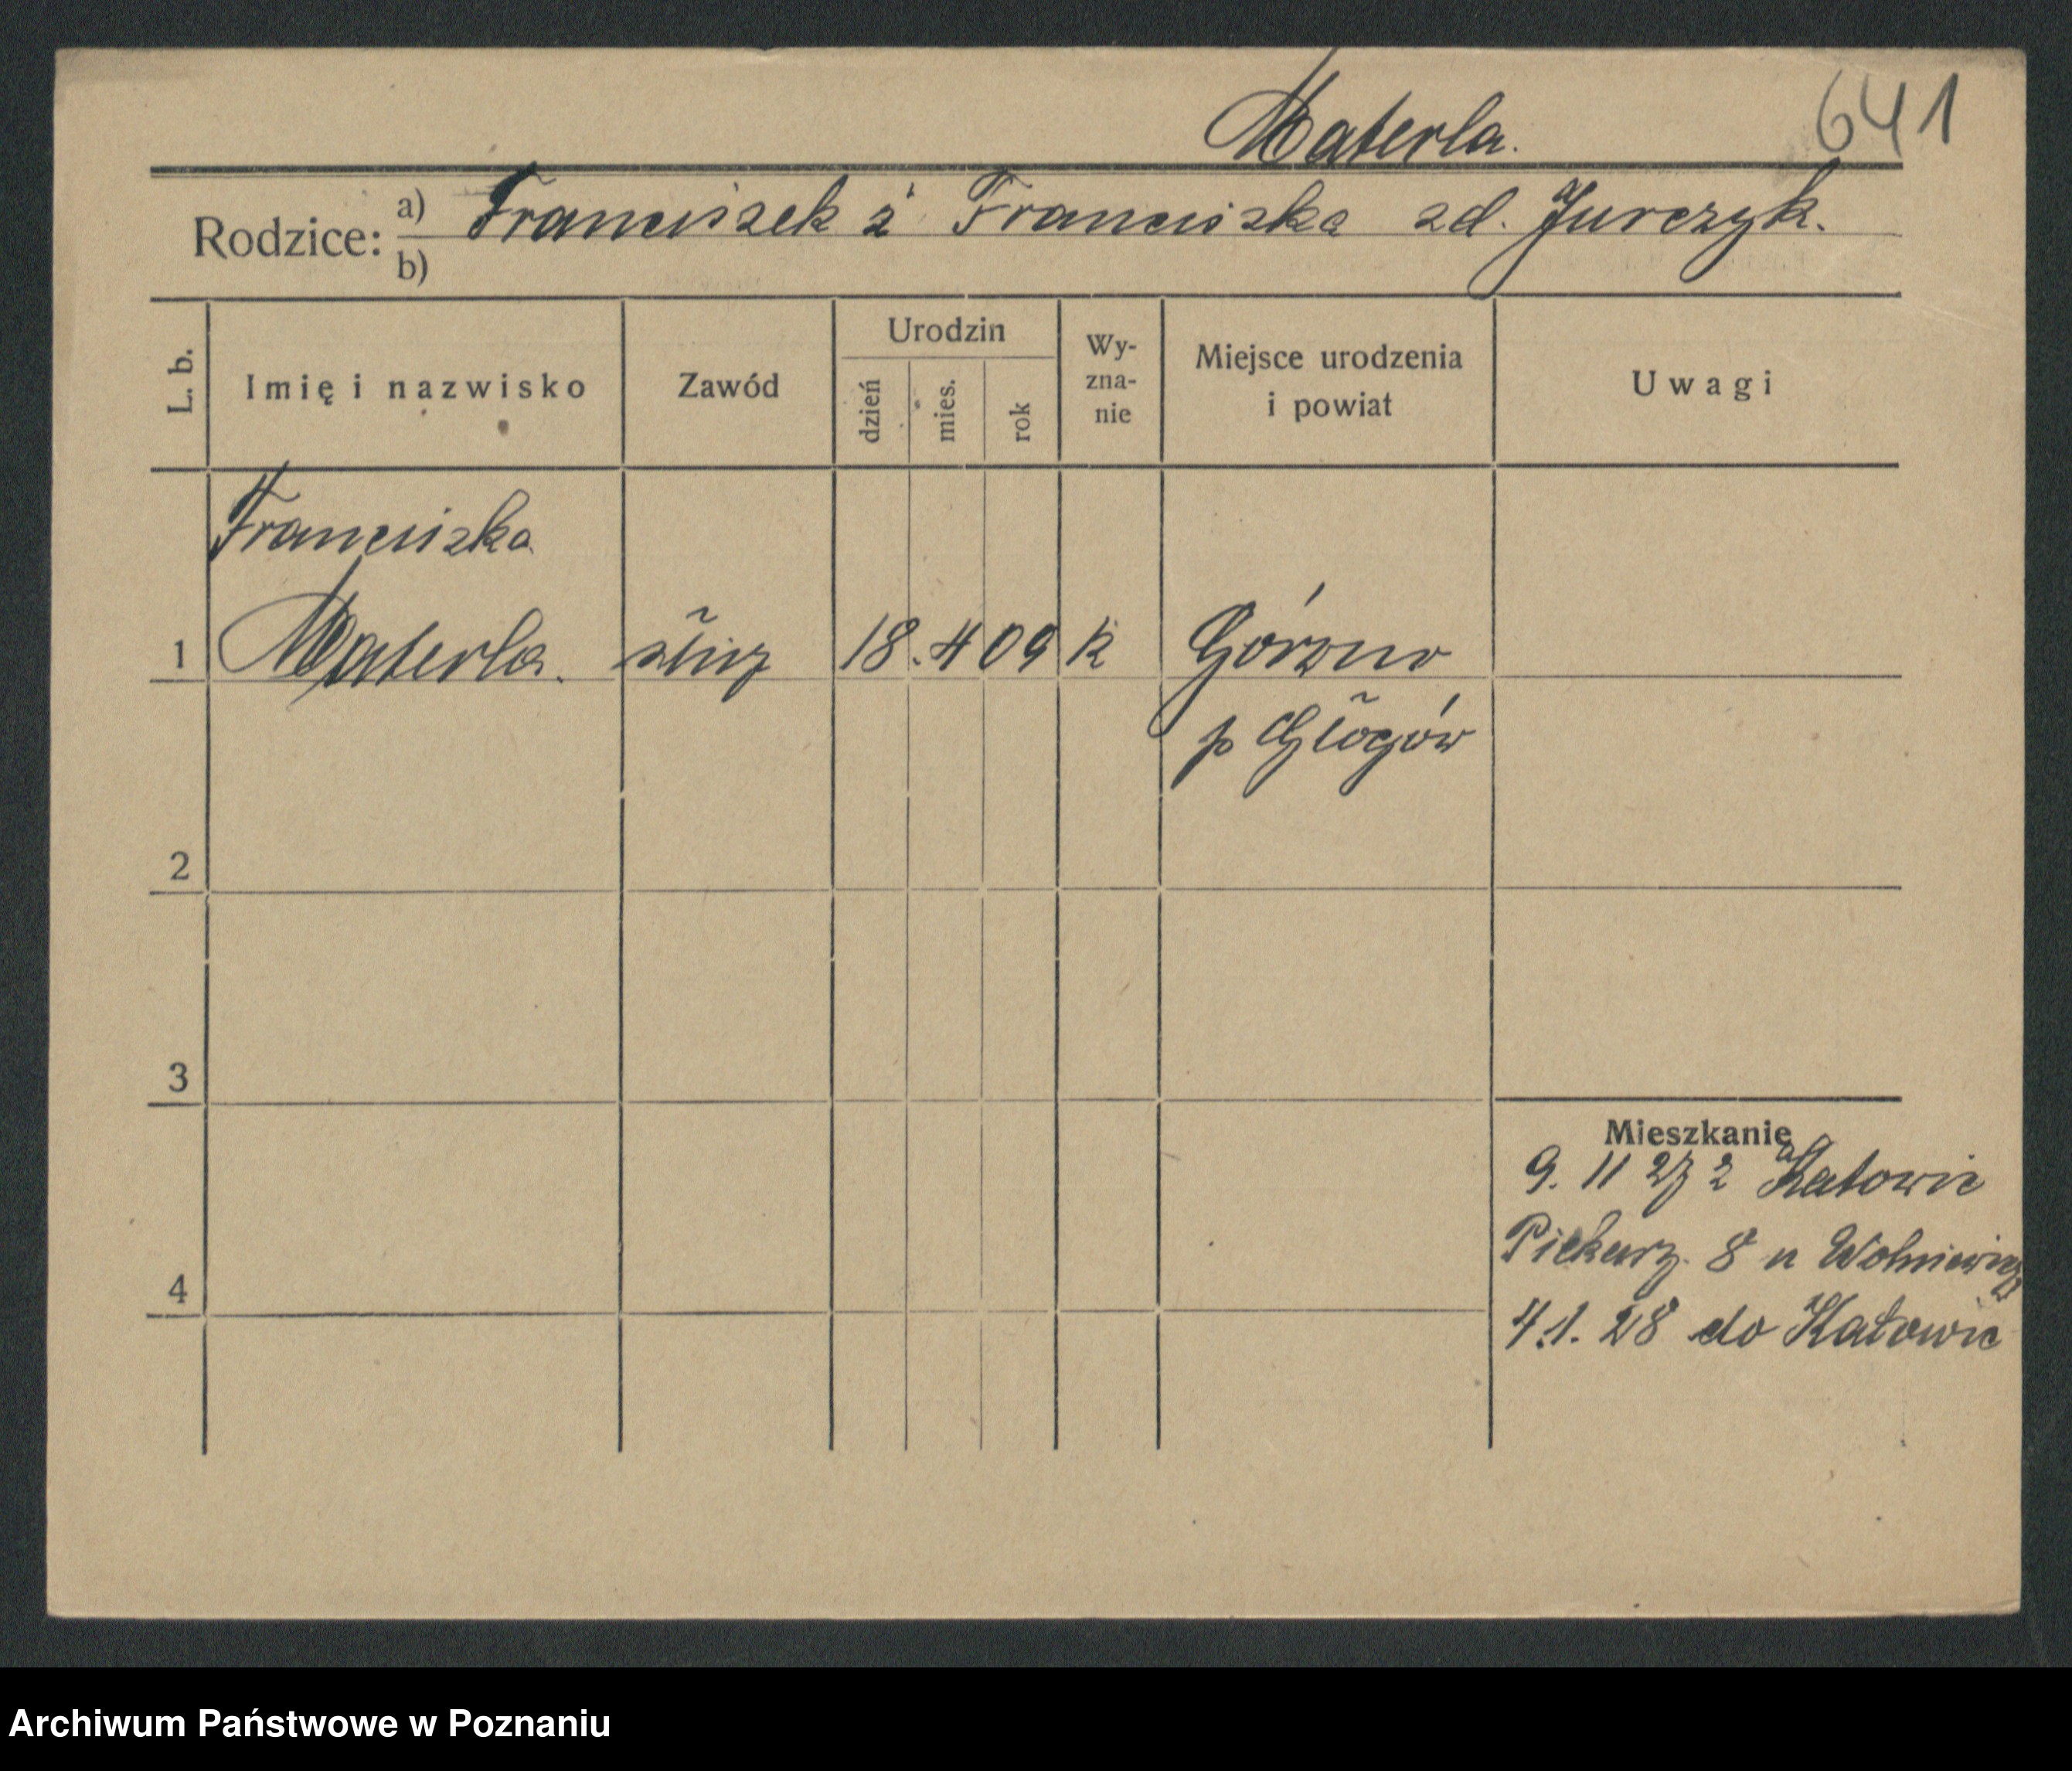 Materla.
641
Rodzice: a) Franciszek i Franciszka zd. Jurczyk.
b)
L. b. Imię i nazwisko Zawód Urodzin dzień mies. rok Wy-zna-nie Miejsce urodzenia i powiat Uwagi
Franciszka
1 Materla. służ 18. 4 09 k Górzno
p Głogów
2
3
Mieszkanie
9. 11 27 z Katowic
Piekarz. 8 u Wolniewicz
4
4.1. 28 do Katowic
Archiwum Państwowe w Poznaniu